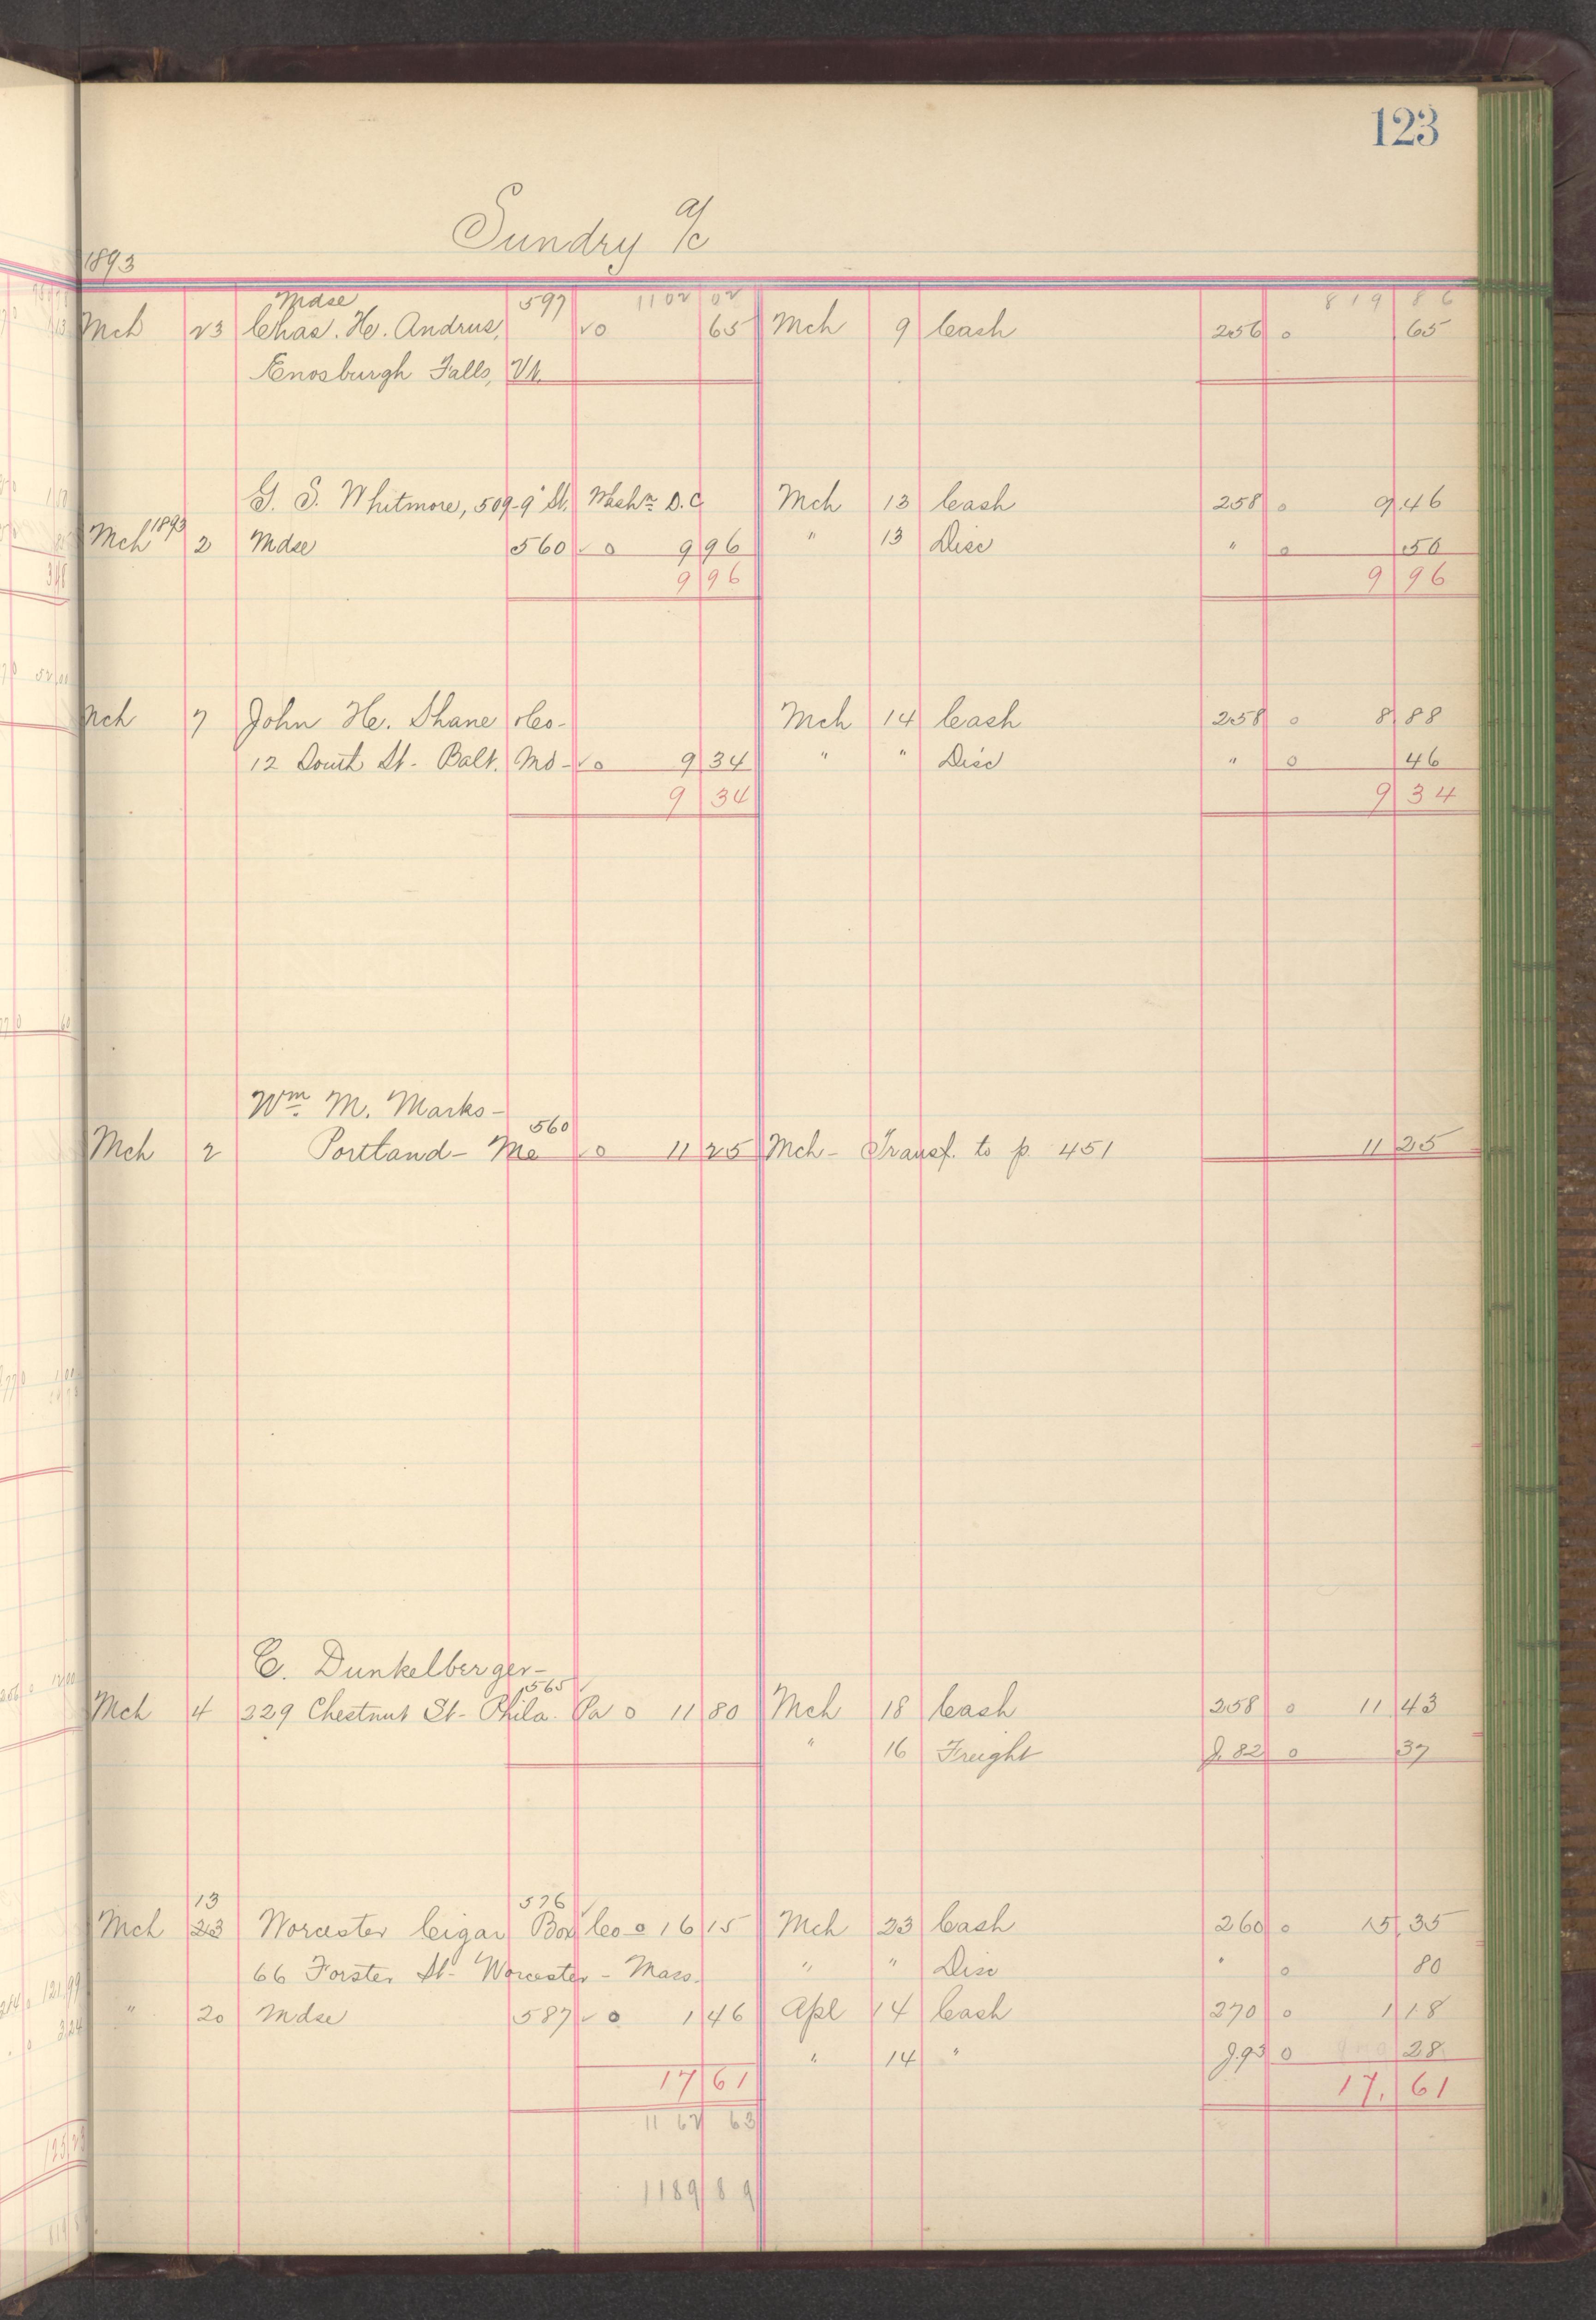 123
Sundry a/c
1893
Mdse 597 1102 02 819 86
Mch 23 Chas. H. Andrus, 0 65 Mch 9 Cash 256 0 65
Enosburgh Falls, Vt.
G. S. Whitmore, 509-9" St. Washn D.C. Mch 13 Cash 258 0 9.46
Mch 1893 2 Mdse 560 0 9 96 " 13 Disc " 0 50
9 96 9 96
Mch 7 John H. Shane & Co- Mch 14 Cash 258 0 8 88
12 South St- Balt. Md- 0 9 34 " " Disc " 0 46
9 34 9 34
Wm. M. Marks-
560
Mch 2 Portland- Me 0 11 25 Mch- Transf. to p. 451 11 25
C. Dunkelberger-
565
Mch 4 329 Chestnut St- Phila. Pa 0 11 80 Mch 18 Cash 258 0 11 43
" 16 Freight J. 82 0 37
13 576
Mch 23 Worcester Cigar Box Co 0 16 15 Mch 23 Cash 260 0 15 35
66 Forster St- Worcester- Mass. " " Disc " 0 80
" 20 Mdse 587 0 1 46 Apl 14 Cash 270 0 1 18
" 14 " J.93 0 28
17 61 17. 61
11 67 63
1189 89